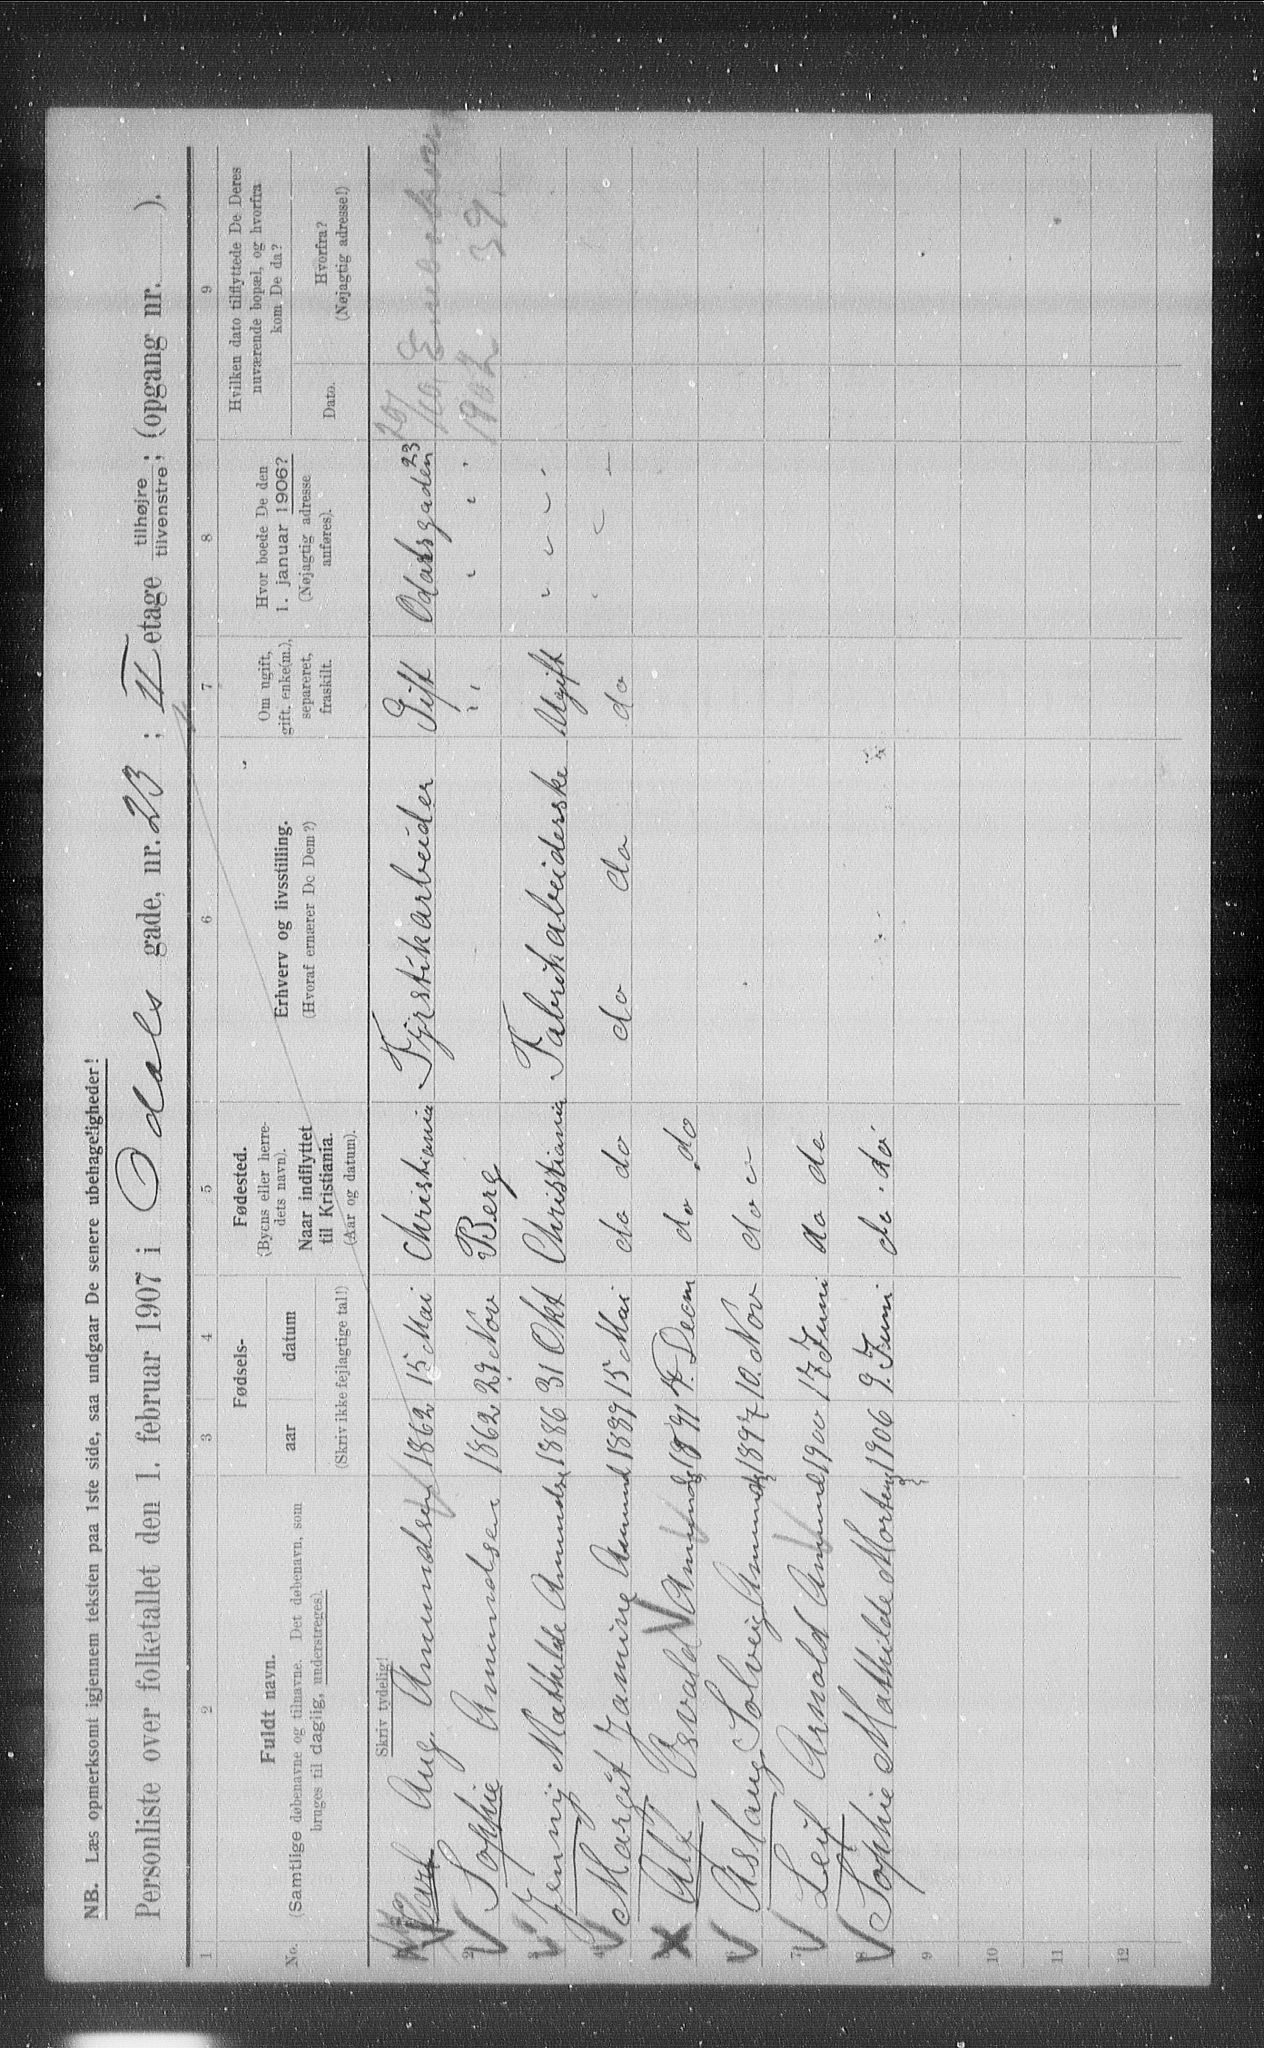 NB. Læs opmerksomt igjennem teksten paa 1ste side, saa undgaar De senere ubehageligheder!
Personliste over folketallet den 1. februar 1907 i Odals gade, nr. 23; II etage tilhøjre tilvenstre; (opgang nr. ).
1 2 3 4 5 6 7 8 9
No.
Fuldt navn.
(Samtlige døbenavne og tilnavne. Det døbenavn, som
bruges til daglig, understreges).
Fødsels-
aar datum
(Skriv ikke fejlagtige tal!)
Fødested.
(Byens eller herre-
dets navn).
Naar indflyttet
til Kristiania.
(Aar og datum).
Erhverv og livsstilling.
(Hvoraf ernærer De Dem?)
Om ugift,
gift, enke(m.),
separeret,
fraskilt.
Hvor boede De den
1. januar 1906?
(Nøjagtig adresse
anføres).
Hvilken dato tilflyttede De Deres
nuværende bopæl, og hvorfra
kom De da?
Dato.
Hvorfra?
(Nøjagtig adresse!)
Skriv tydelig!
Karl Aug Amundsen 1862 15 Mai Christiania Fyrstikarbeider Gift Odalsgaden 23
2 Sophie Amundsen 1862 29 Nov Berg " 1902 39
Jenny Mathilde Amunds 1886 31 Okt Christiania Fabrikabeiderske Ugift
Margit Janine Amund 1889 15 Mai do do do do do
Alf Osvald Amunds 1891 4. Decm do do
Aslaug Solveig Amunds 1897 10. Nov do "
7 Leif Arnold Amund 1900 17 Juni do do
Sophie Mathilde Mortens 1906 9. Juni do. do
9
10
11
12